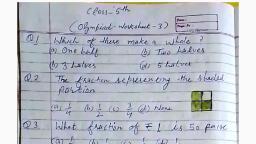 Class-5th
(Olympiad-Worksheet-3)
Q.1 Which of these make a whole?
(a) One half (b) Two halves
(c) 3 halves (d) 5 halves
Q.2 The fraction representing the shaded
portion
(a) 1/4 (b) 1/2 (c) 3/4 (d) None
Q3. What fraction of ₹1 is 50 paise